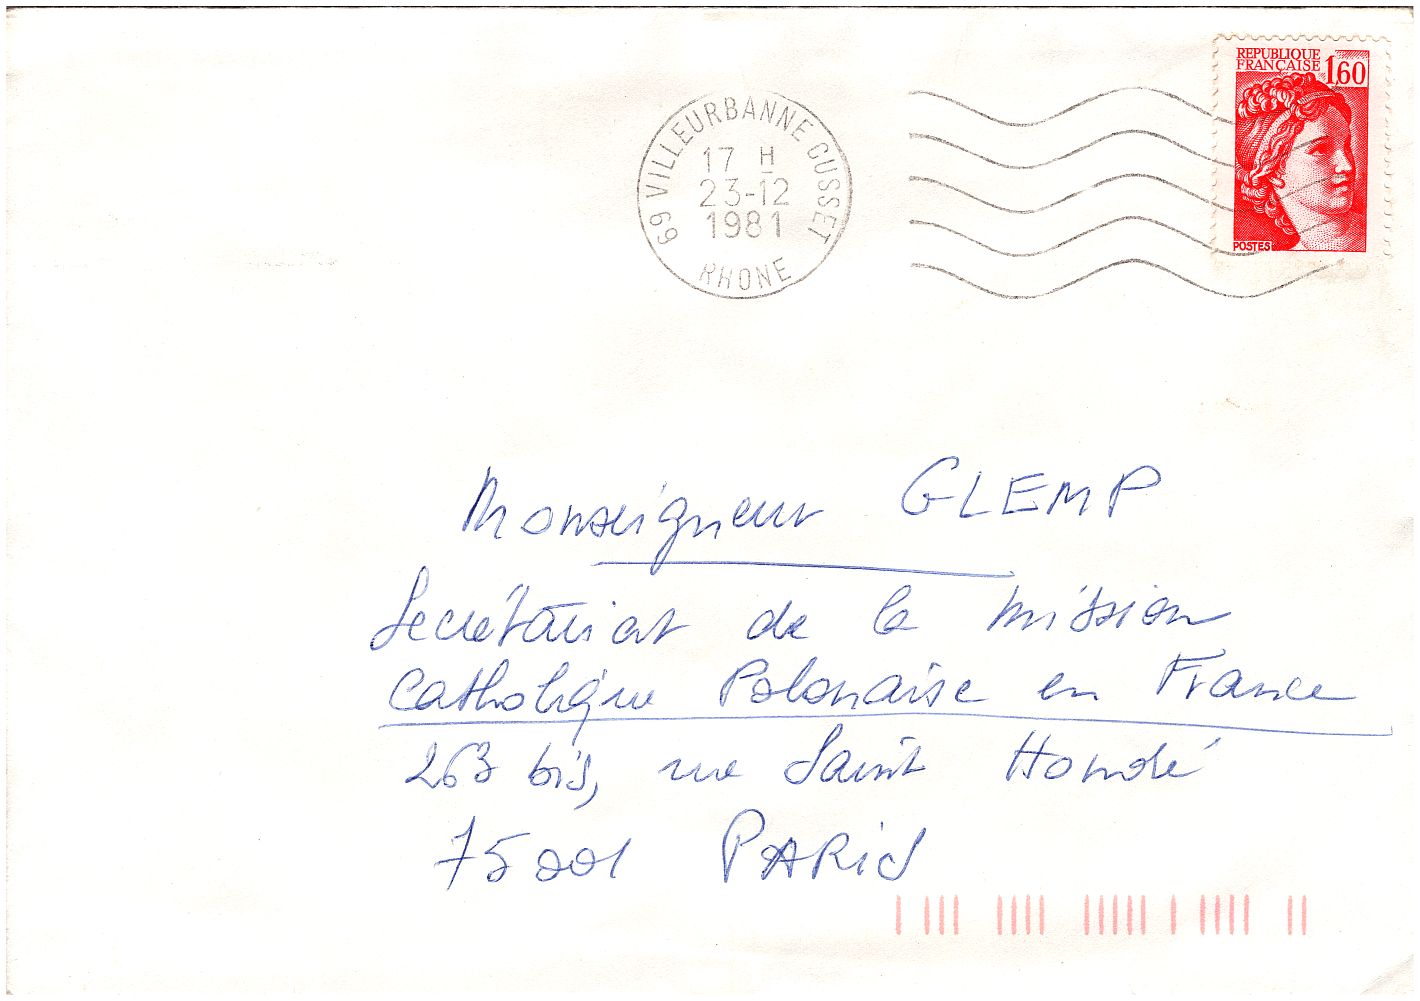 REPUBLIQUE
FRANÇAISE 1,60
POSTES
69 VILLEURBANNE CUSSET
17 H
23-12
1981
RHONE
Monseigneur GLEMP
Secrétariat de la mission
Catholique Polonaise en France
263 bis, rue Saint Honoré
75001 PARIS